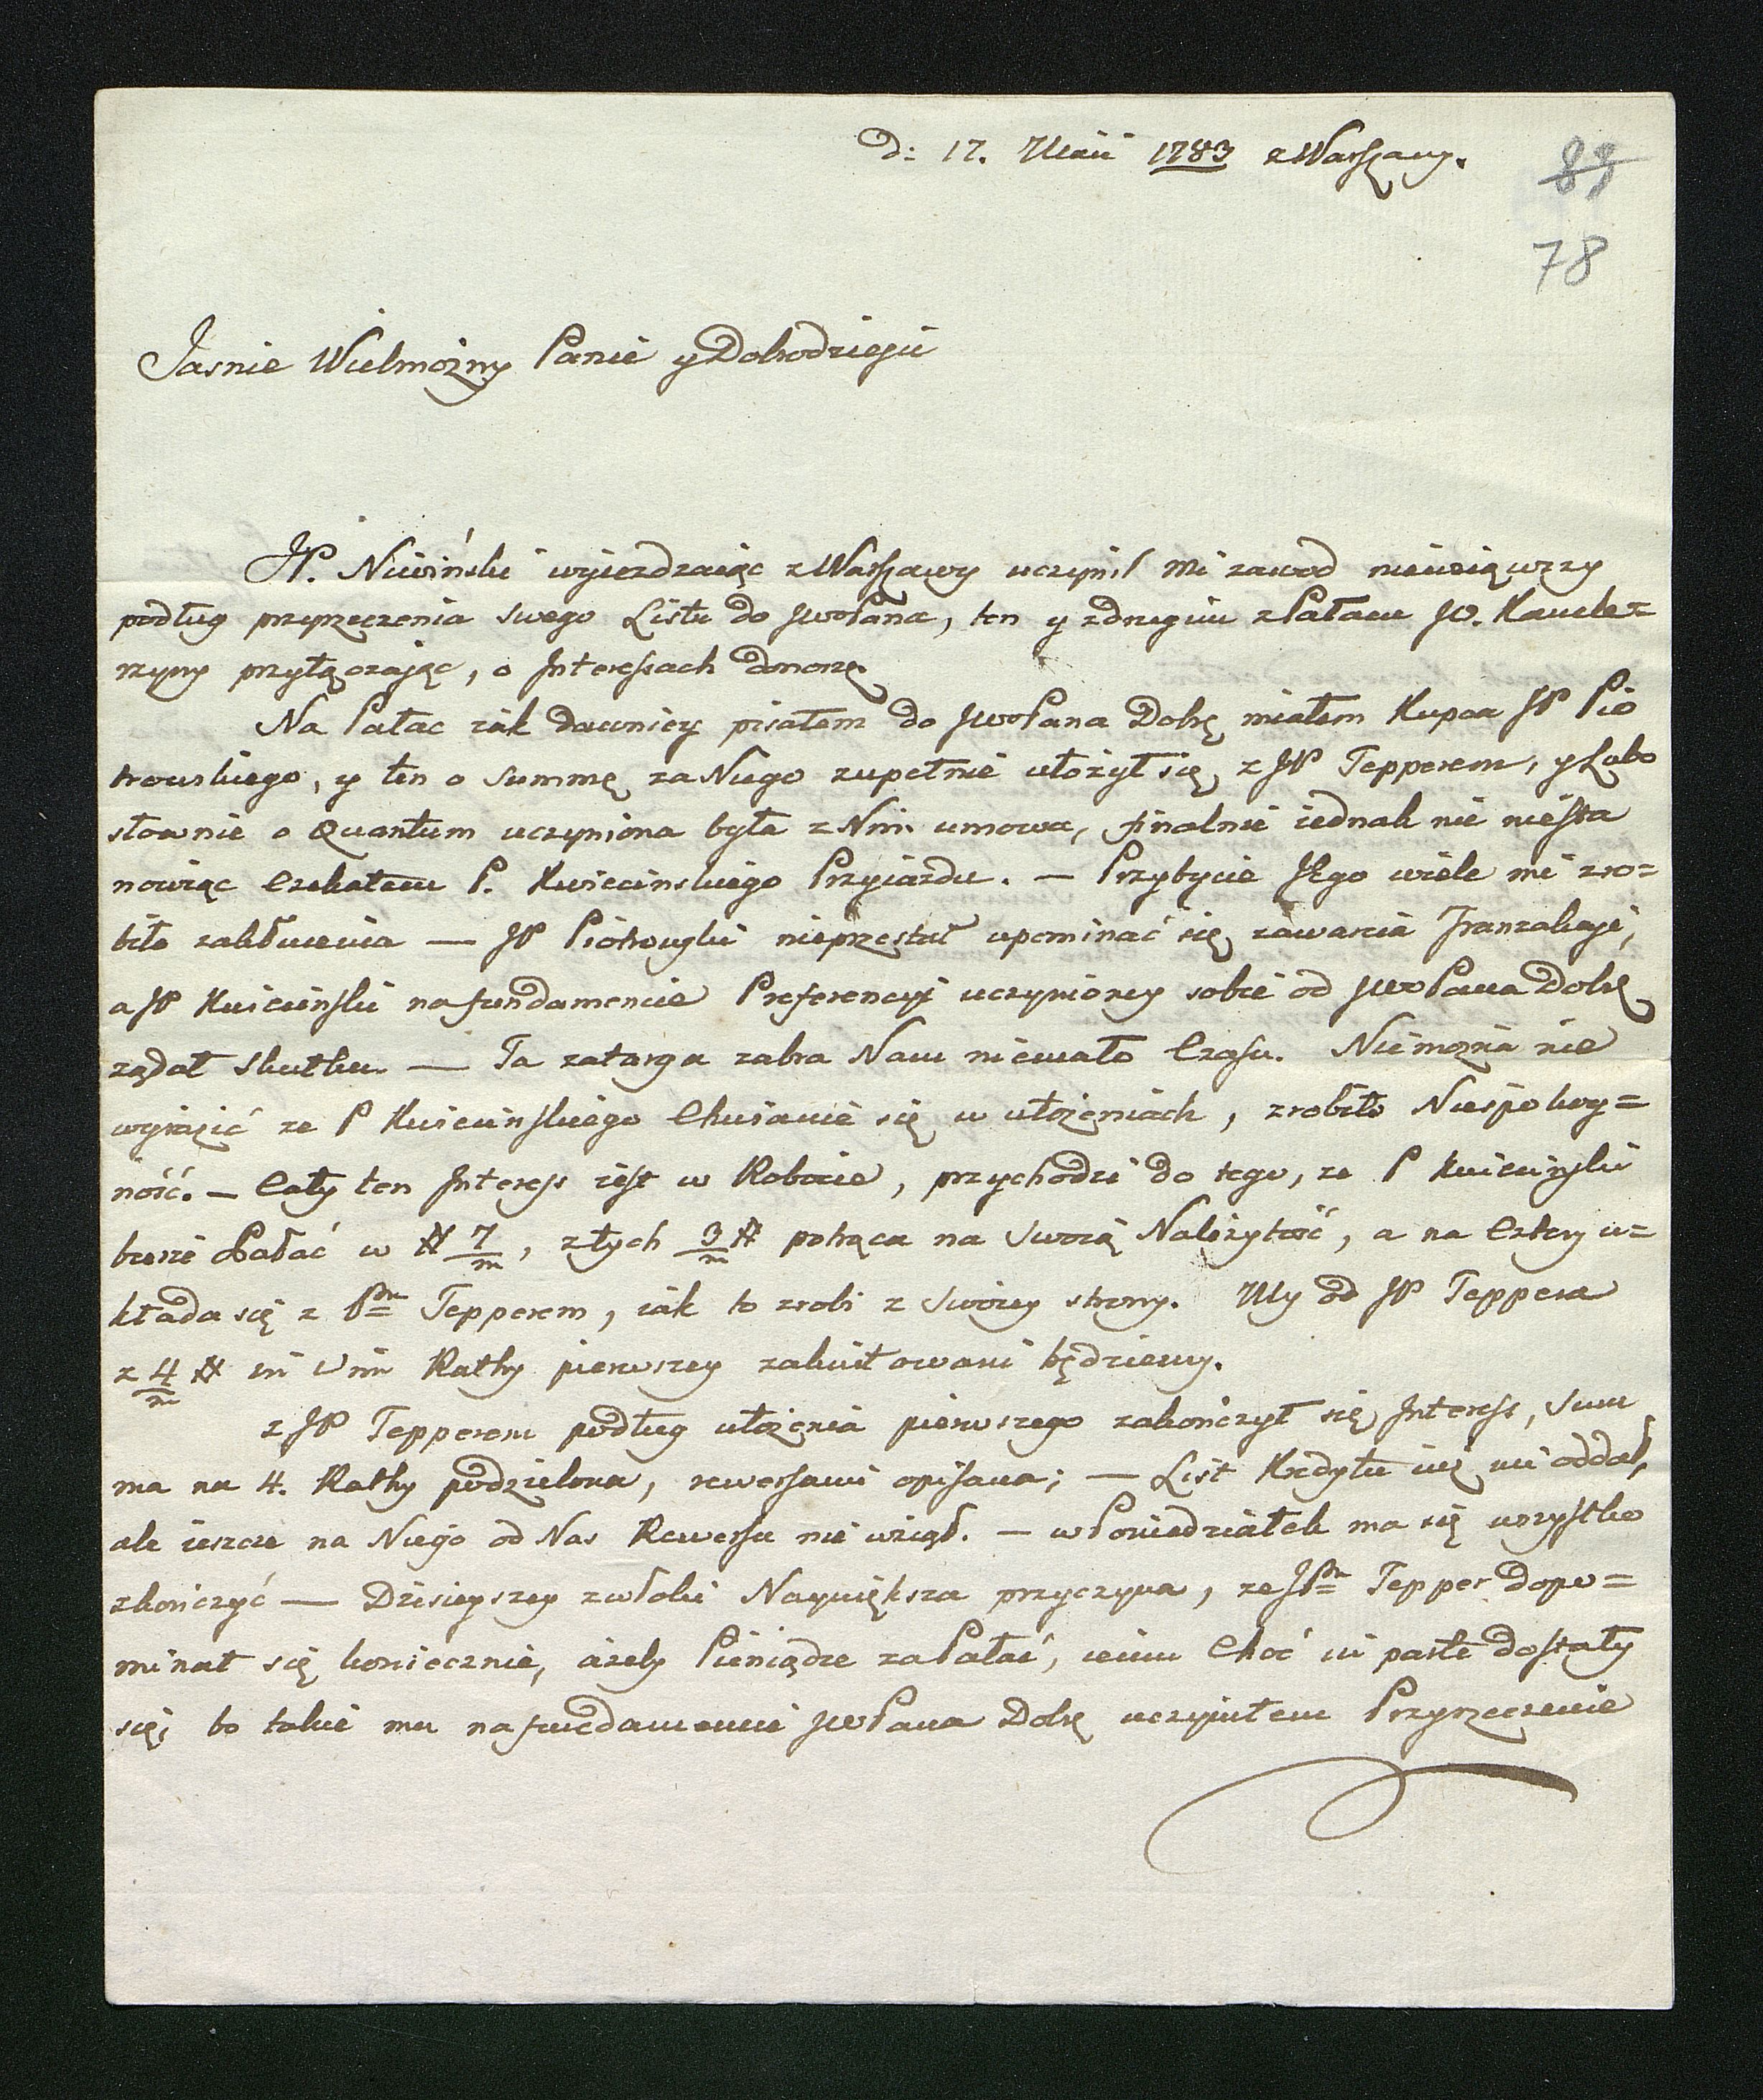 d: 17. Maii 1783 z Warszawy.
89
78
Jasnie Wielmożny Panie y Dobrodzieju
JP. Niwiński wyiezdzaiąc z Warszawy uczynił mi zawod niewziąwszy
podług przyrzeczenia swego Listu do JWoPana, ten y z drugim z Pałacu JW. Kancler
rzyny przyłączając, o Interessach donoszę.
Na Pałac iak dawniey pisałem do JWoPana Dobr miałem Kupca JP Pio
trowskiego, y ten o Summę za Niego zupełnie ułożył się z JP Tepperem, y Lubo
słownie o Quantum uczyniona była z Nim umowa, finalnie iednak nie niesta
nowiąc Czekałem P. Kwiecinskiego Przyiazdu. — Przybycie JEgo wiele mi zro=
biło zakłucenia — JP Piotrowski nieprzestał upominać się zawarcia Tranzakcji,
a JP Kwieciński na fundamencie Preferencyi uczynioney sobie od JWoPana Dobr
ządał Skutku. — Ta zatarga zabra Nam niemało Czasu. Niemożna nie
wyrazić ze P Kwiecinskiego Chwianie się w ułożeniach, zrobiło Niespokoy=
ność. — Cały ten Interess iest w Robocie, przychodzi do tego, ze P Kwieciński
bierze Pałac w # 7/m, z tych 3/m # potrąca na Swoią Należytość, a na Cztery u=
kłada się z Pm Tepperem, iak to zrobi z Swoiey strony. My od JP Teppera
z 4/m # in Vim Rathy pierwszey zakwitowani będziemy.
z JP Tepperem podług ułożenia pierwszego zakończył się Interess, Sum
ma na 4. Rathy podzielona, rewersami opisana; — List Kredytu iuż mi oddał,
ale ieszcze na Niego od Nas Rewersu nie wziął. — w Poniedziałek ma się wszystko
zkończyć — Dzisieyszey zwłoki Naywiększa przyczyna, ze JPn Tepper dopo=
minał się koniecznie, ażeby Pieniądze za Pałac, iemu Choć in parte dostały
się, bo takie mu na fundamencie JWPana Dobr uczyniłem Przyrzeczenie